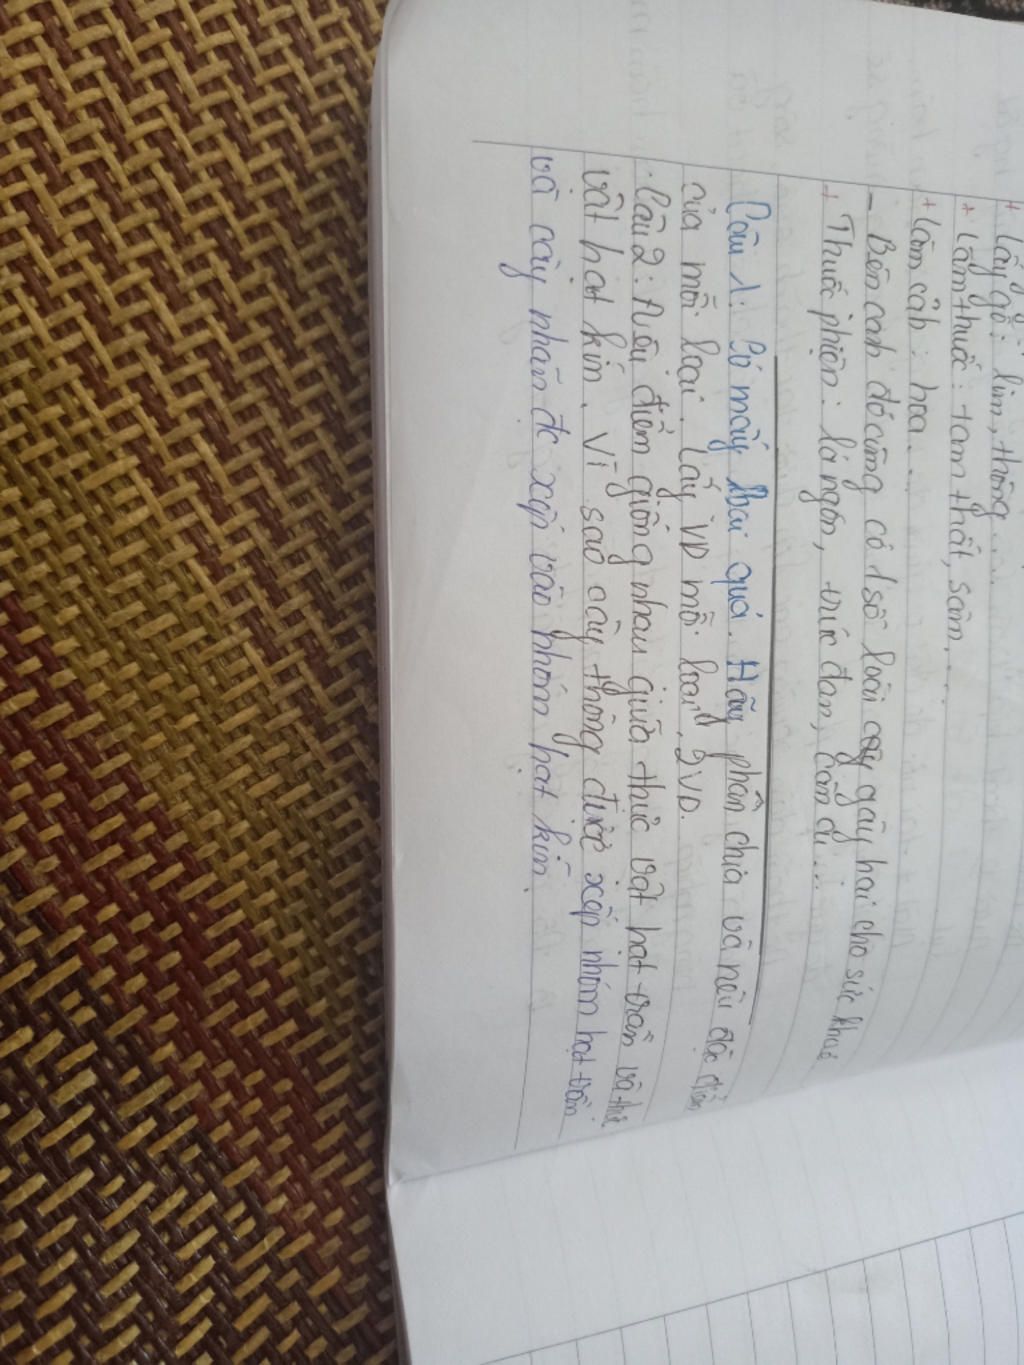 + Lấy gỗ: lim, thông...
+ Làm thuốc: tam thất, sâm....
+ Làm cảnh: hoa....
- Bên cạnh đó cũng có 1 số loài cây gây hại cho sức khoẻ
+ Thuốc phiện. lá ngón, trúc đào, cần sa...
Câu 1. Có mấy loại quả. Hãy phân chia và nêu đặc điểm
của mỗi loại. Lấy VD mỗi loại 2VD.
Câu 2: Nêu điểm giống nhau giữa thực vật hạt trần và thực
vật hạt kín. Vì sao cây thông được xếp nhóm hạt trần
và cây nhãn đc xếp vào nhóm hạt kín.